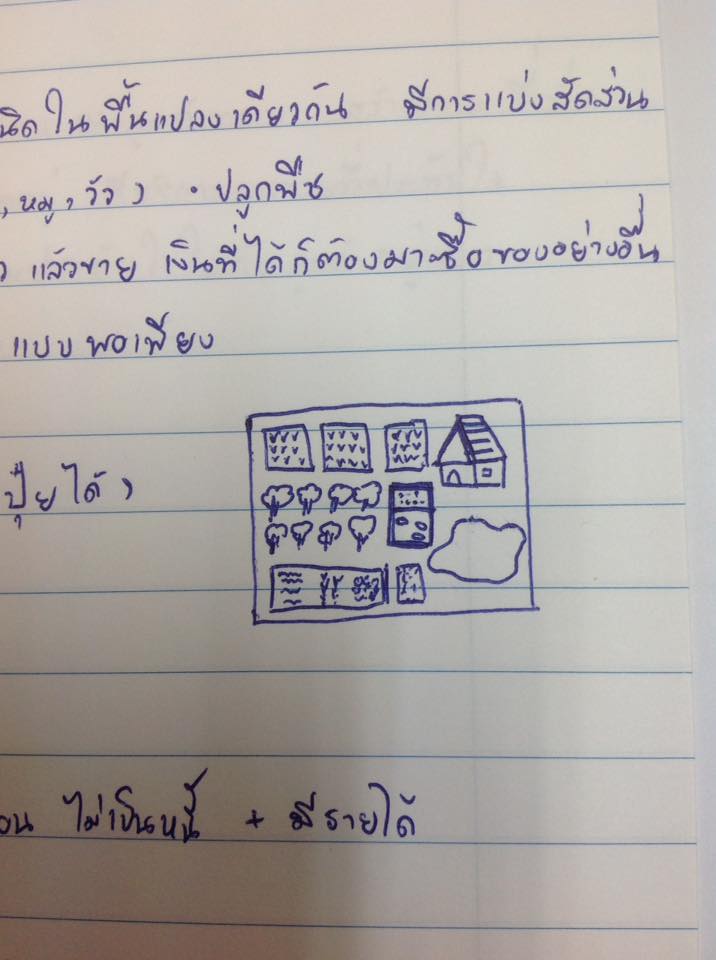 นิดในพื้นแปลงเดียวกัน มีการแบ่งสัดส่วน
,หมู,วัว) · ปลูกพืช
แล้วขาย เงินที่ได้ก็ต้องมาซื้อของอย่างอื่น
แบบพอเพียง
ปุ๋ยได้)
อน ไม่เป็นหนี้ + มีรายได้